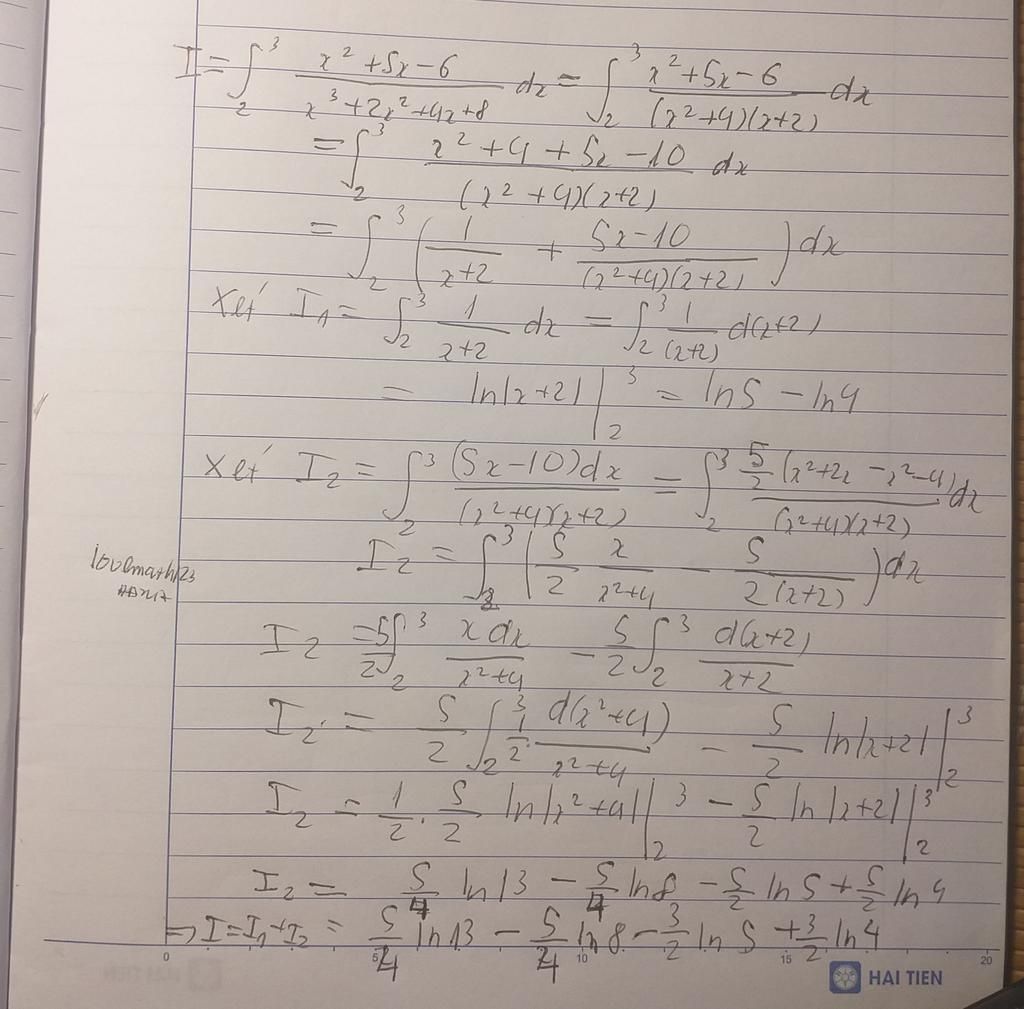 I = ∫₂³ (x² + 5x − 6)/(x³ + 2x² + 4x + 8) dx = ∫₂³ (x² + 5x − 6)/((x² + 4)(x + 2)) dx
= ∫₂³ (x² + 4 + 5x − 10)/((x² + 4)(x + 2)) dx
= ∫₂³ (1/(x + 2) + (5x − 10)/((x² + 4)(x + 2))) dx
Xét I₁ = ∫₂³ 1/(x + 2) dx = ∫₂³ 1/(x + 2) d(x + 2)
= ln|x + 2| |₂³ = ln5 − ln4
Xét I₂ = ∫₂³ (5x − 10)dx/((x² + 4)(x + 2)) = ∫₂³ 5/2 (x² + 2x − x² − 4)/((x² + 4)(x + 2)) dx
I₂ = ∫₂³ (5/2 x/(x² + 4) − 5/(2(x + 2))) dx
lovemath123
I₂ = 5/2 ∫₂³ x dx/(x² + 4) − 5/2 ∫₂³ d(x + 2)/(x + 2)
I₂ = 5/2 ∫₂³ 1/2 · d(x² + 4)/(x² + 4) − 5/2 ln|x + 2| |₂³
I₂ = 1/2 · 5/2 ln|x² + 4| |₂³ − 5/2 ln|x + 2| |₂³
I₂ = 5/4 ln13 − 5/4 ln8 − 5/2 ln5 + 5/2 ln4
⇒ I = I₁ + I₂ = 5/4 ln13 − 5/4 ln8 − 3/2 ln5 + 3/2 ln4
0 5 10 15 20
HAI TIEN